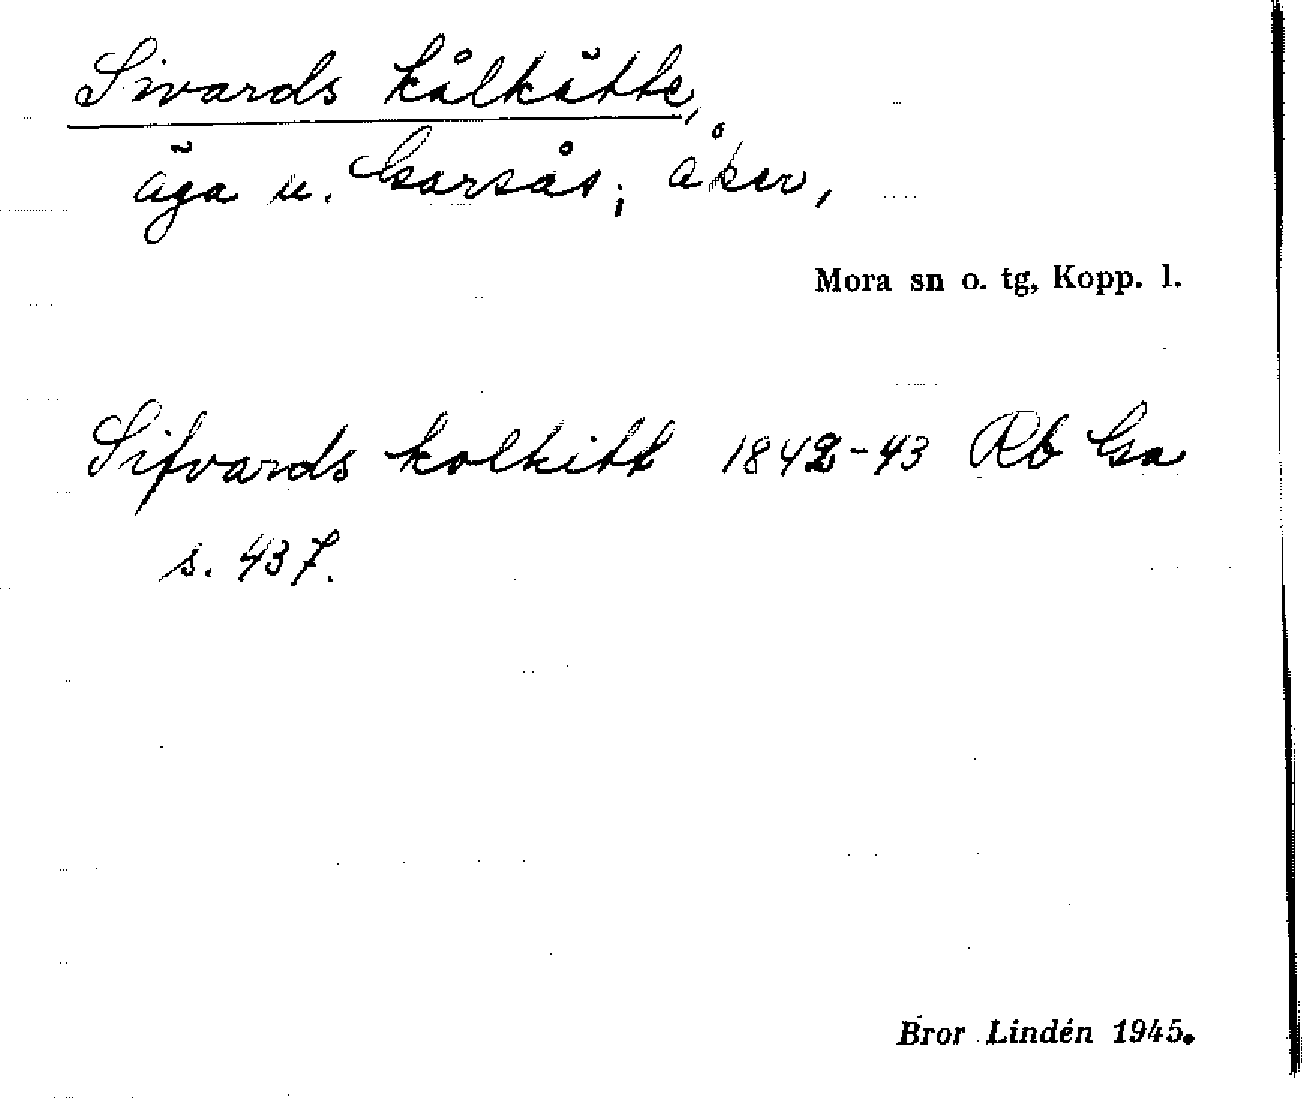 Sivards kålkätte,
äga u. Garsås; åker,
Mora sn o. tg, Kopp. l.
Sifvards kolkitt 1842-43 Rb Ga
s. 437.
Bror Lindén 1945.